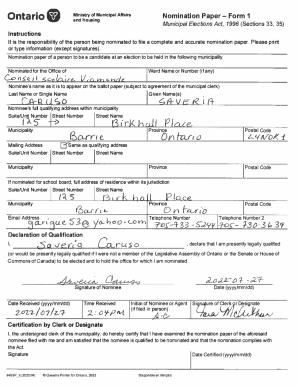 Ontario
Ministry of Municipal Affairs
and Housing
Nomination Paper – Form 1
Municipal Elections Act, 1996 (Sections 33, 35)
Instructions
It is the responsibility of the person being nominated to file a complete and accurate nomination paper. Please print
or type information (except signatures).
Nomination paper of a person to be a candidate at an election to be held in the following municipality
Nominated for the Office of
Ward Name or Number (if any)
Conseil scolaire Viamonde
Nominee's name as it is to appear on the ballot paper (subject to agreement of the municipal clerk)
Last Name or Single Name
Given Name(s)
CARUSO
SAVERIA
Nominee's full qualifying address within municipality
Suite/Unit Number
Street Number
Street Name
125
Birkhall Place
Municipality
Province
Postal Code
Barrie
Ontario
Mailing Address
Same as qualifying address
Suite/Unit Number
Street Number
Street Name
Municipality
Province
Postal Code
If nominated for school board, full address of residence within its jurisdiction
Suite/Unit Number
Street Number
Street Name
125
Birkhall Place
Municipality
Province
Postal Code
Barrie
Ontario
Email Address
Telephone Number
Telephone Number 2
garigue53@yahoo.com
705-733-5244
705-730-3639
Declaration of Qualification
I, Saveria Caruso, declare that I am presently legally qualified
(or would be presently legally qualified if I were not a member of the Legislative Assembly of Ontario or the Senate or House of
Commons of Canada) to be elected and to hold the office for which I am nominated.
Saveria Caruso
2022-07-27
Signature of Nominee
Date (yyyy/mm/dd)
Date Received (yyyy/mm/dd)
Time Received
Initial of Nominee or Agent
(if filed in person)
Signature of Clerk or Designate
2022/07/27
2:04PM
S.C
Certification by Clerk or Designate
I, the undersigned clerk of this municipality, do hereby certify that I have examined the nomination paper of the aforesaid
nominee filed with me and am satisfied that the nominee is qualified to be nominated and that the nomination complies with
the Act.
Signature
Date Certified (yyyy/mm/dd)